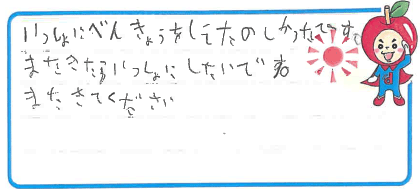 いっしょにべんきょうをしてたのしかったです。
またきたらいっしょにしたいです。
またきてください